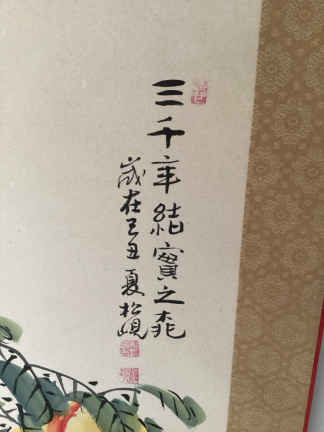 三千年結實之桃
歲在己丑夏松峴